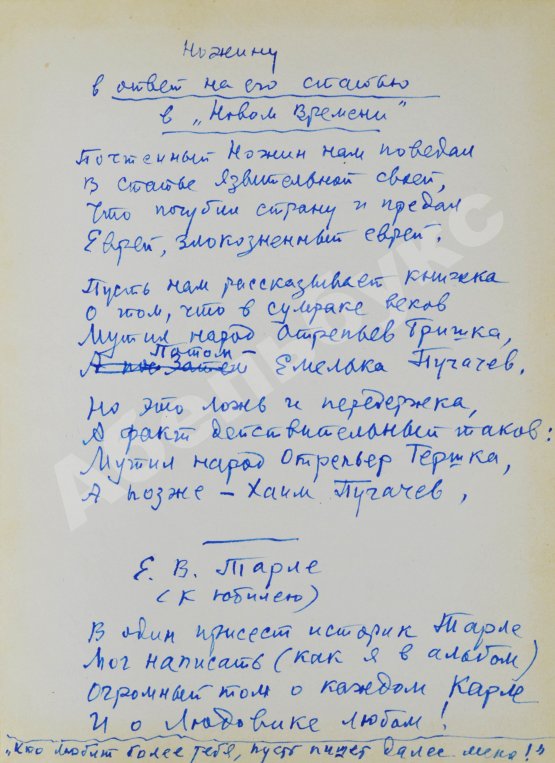 Ножину
в ответ на его статью
в „Новом Времени"
Почтенный Ножин нам поведал
В статье язвительной своей,
Что погубил страну и предал
Еврей, злокозненный еврей.
Пусть нам рассказывает книжка
О том, что в сумраке веков
Мутил народ Отрепьев Гришка,
Потом –
А Затем Емелька Пугачев.
Но это ложь и передержка,
А факт действительный таков:
Мутил народ Отрепьер Гершка,
А позже – Хаим Пугачев,
Е. В. Тарле
(к юбилею)
В один присест историк Тарле
Мог написать (как я в альбом)
Огромный том о каждом Карле
И о Людовике любом!
„Кто любит более тебя, пусть пишет далее меня!"
Абельбукс